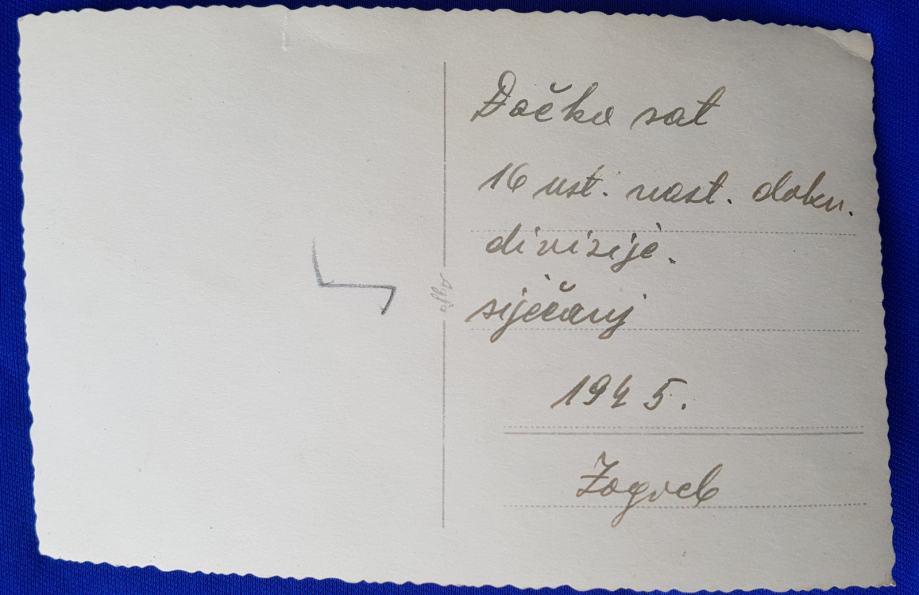 Dočko sat
16 ust. nast. dokn.
divizije.
siječanj
1945.
Zagreb
Agfa